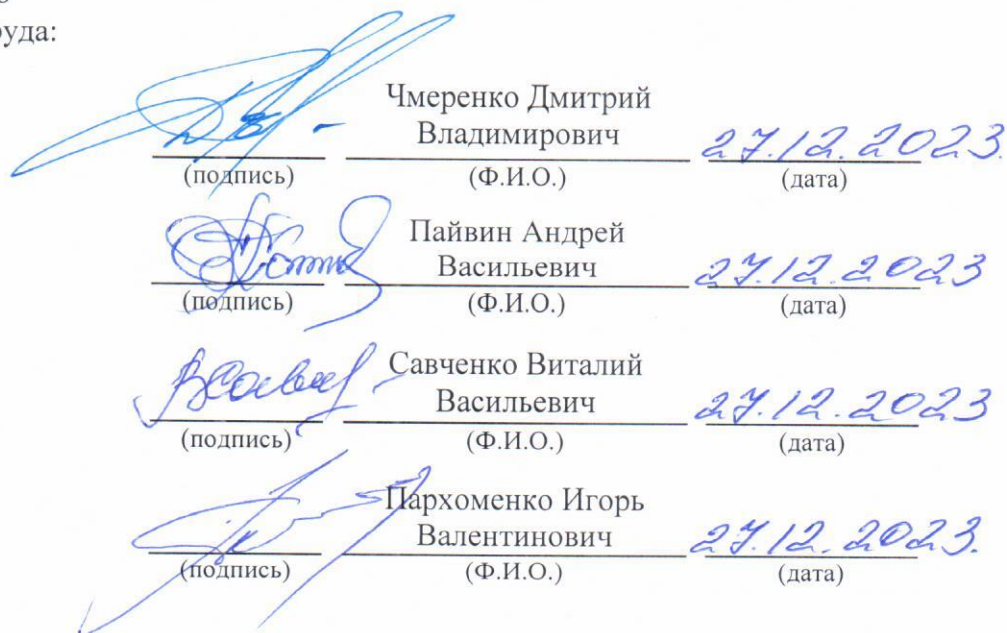 руда:
Чмеренко Дмитрий
Владимирович 27.12.2023.
(подпись) (Ф.И.О.) (дата)
Пайвин Андрей
Васильевич 27.12.2023
(подпись) (Ф.И.О.) (дата)
Савченко Виталий
Васильевич 27.12.2023
(подпись) (Ф.И.О.) (дата)
Пархоменко Игорь
Валентинович 27.12.2023.
(подпись) (Ф.И.О.) (дата)